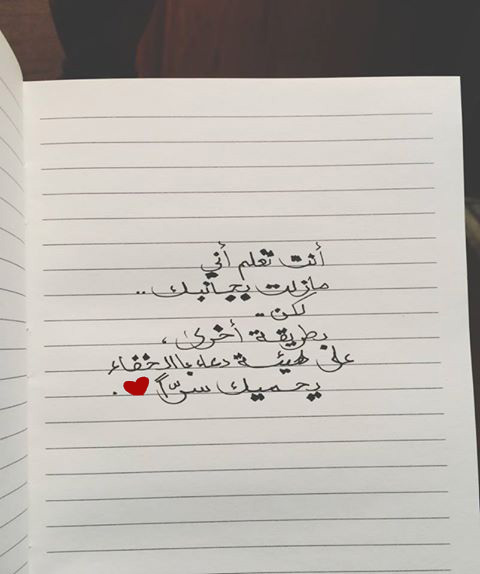 أنت تعلم أني
مازلت بجانبك ..
لكن ..
بطريقة أخرى ،
على هيئة دعاء بالخفاء
يحميك سرّاً ❤ .